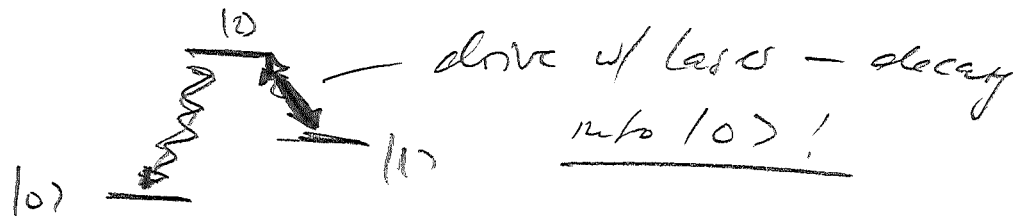 |2⟩
drive w/ laser – decay
into |0⟩ !
|1⟩
|0⟩